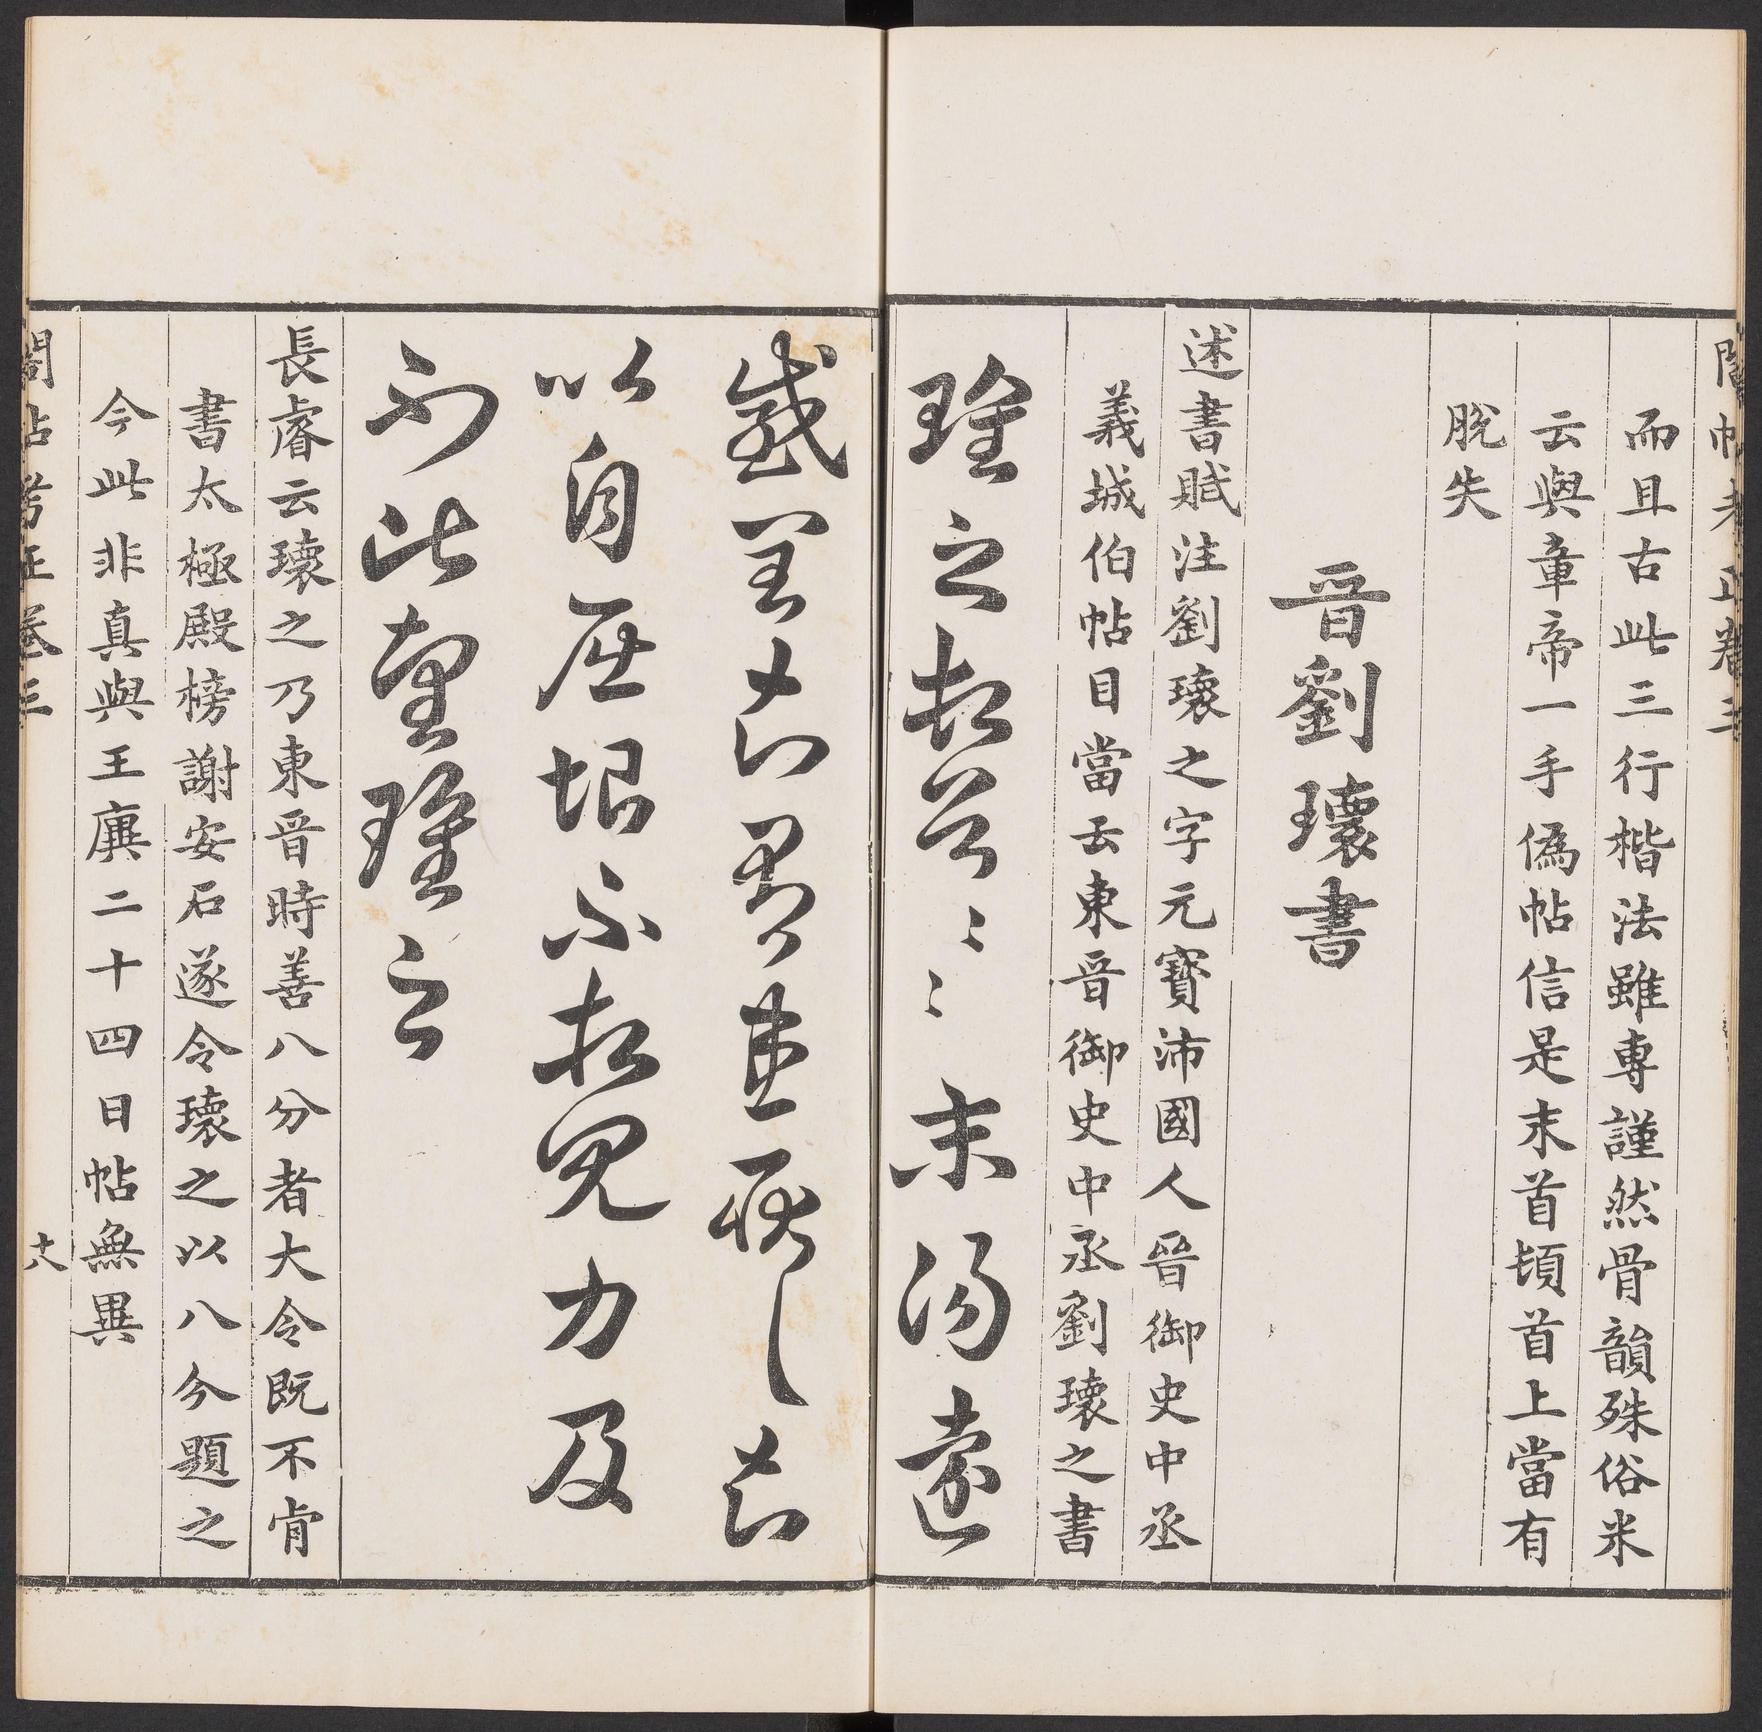 閣帖考正卷三
而且古此三行楷法雖專謹然骨韻殊俗米
云與章帝一手偽帖信是末首頓首上當有
脫失
晉劉瓌書
述書賦注劉瓌之字元寶沛國人晉御史中丞
義城伯帖目當云東晉御史中丞劉瓌之書
瓌之頓首〻〻末遠
感閏
以自恨不相見力及
不瓌之
長睿云瓌之乃東晉時善八分者大令既不肯
書太極殿榜謝安石遂令瓌之以八分題之
今此非真與王廙二十四日帖無異
閣帖考正卷三 十八